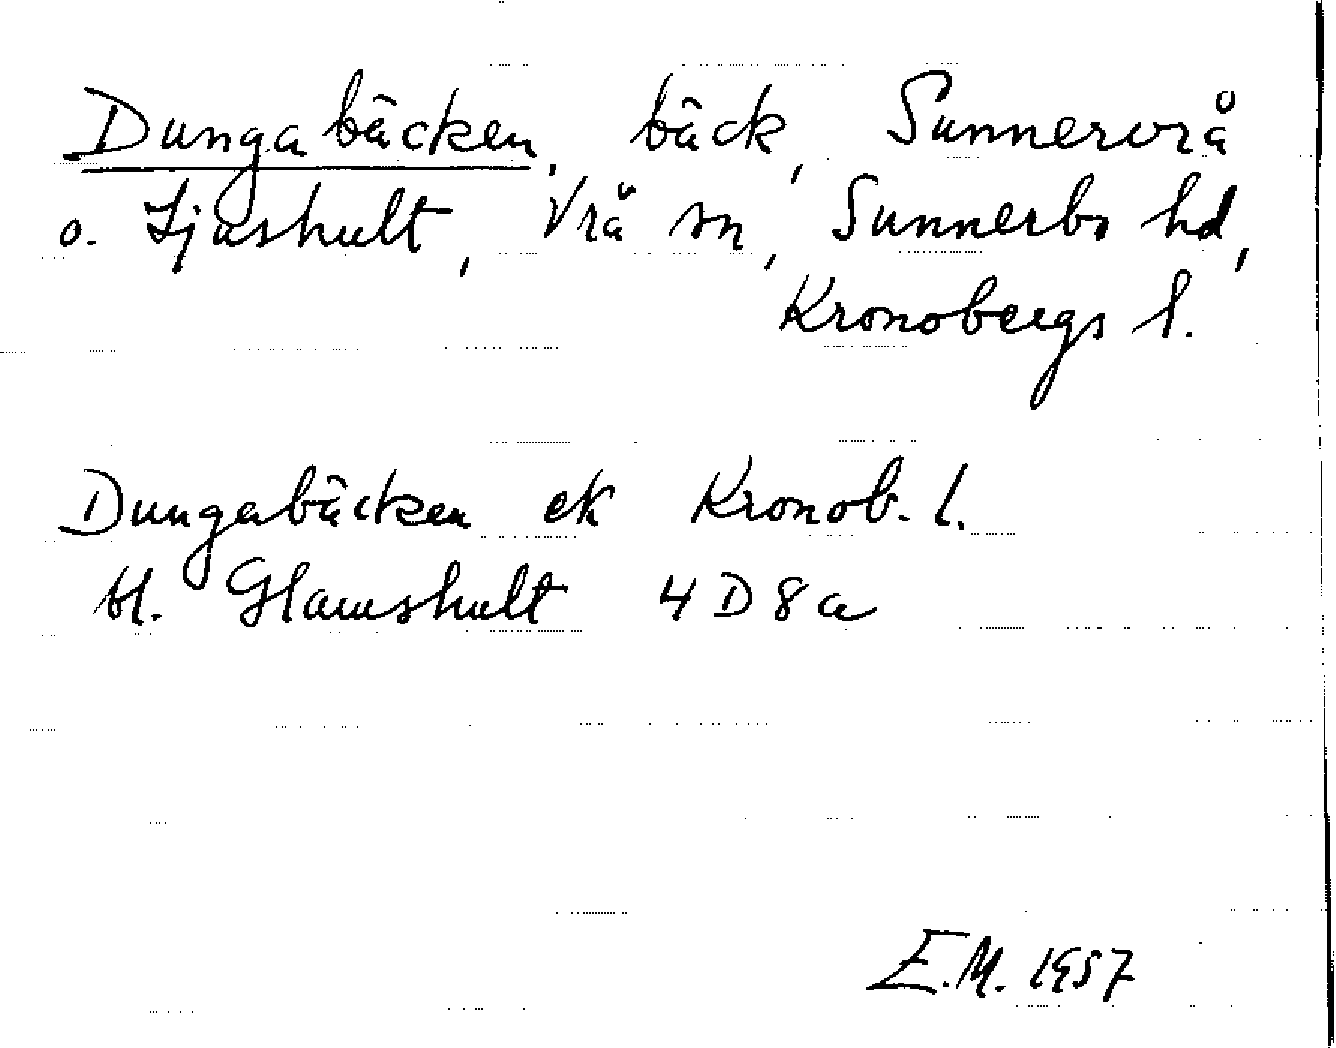 Dungabäcken, bäck, Sunnervrå
o. Ljushult, Vrå sn, Sunnerbo hd,
Kronobergs l.
Dungabäcken ek Kronob. l.
bl. Glamshult 4D8a
E.M. 1957